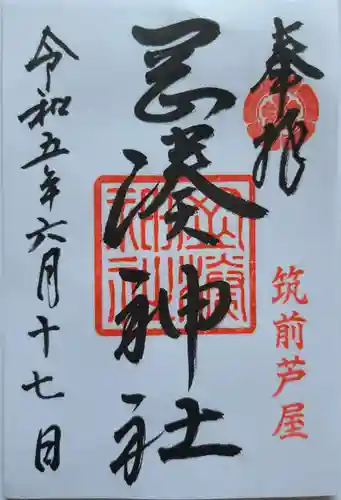 奉拝
筑前芦屋
岡湊神社
令和五年六月十七日